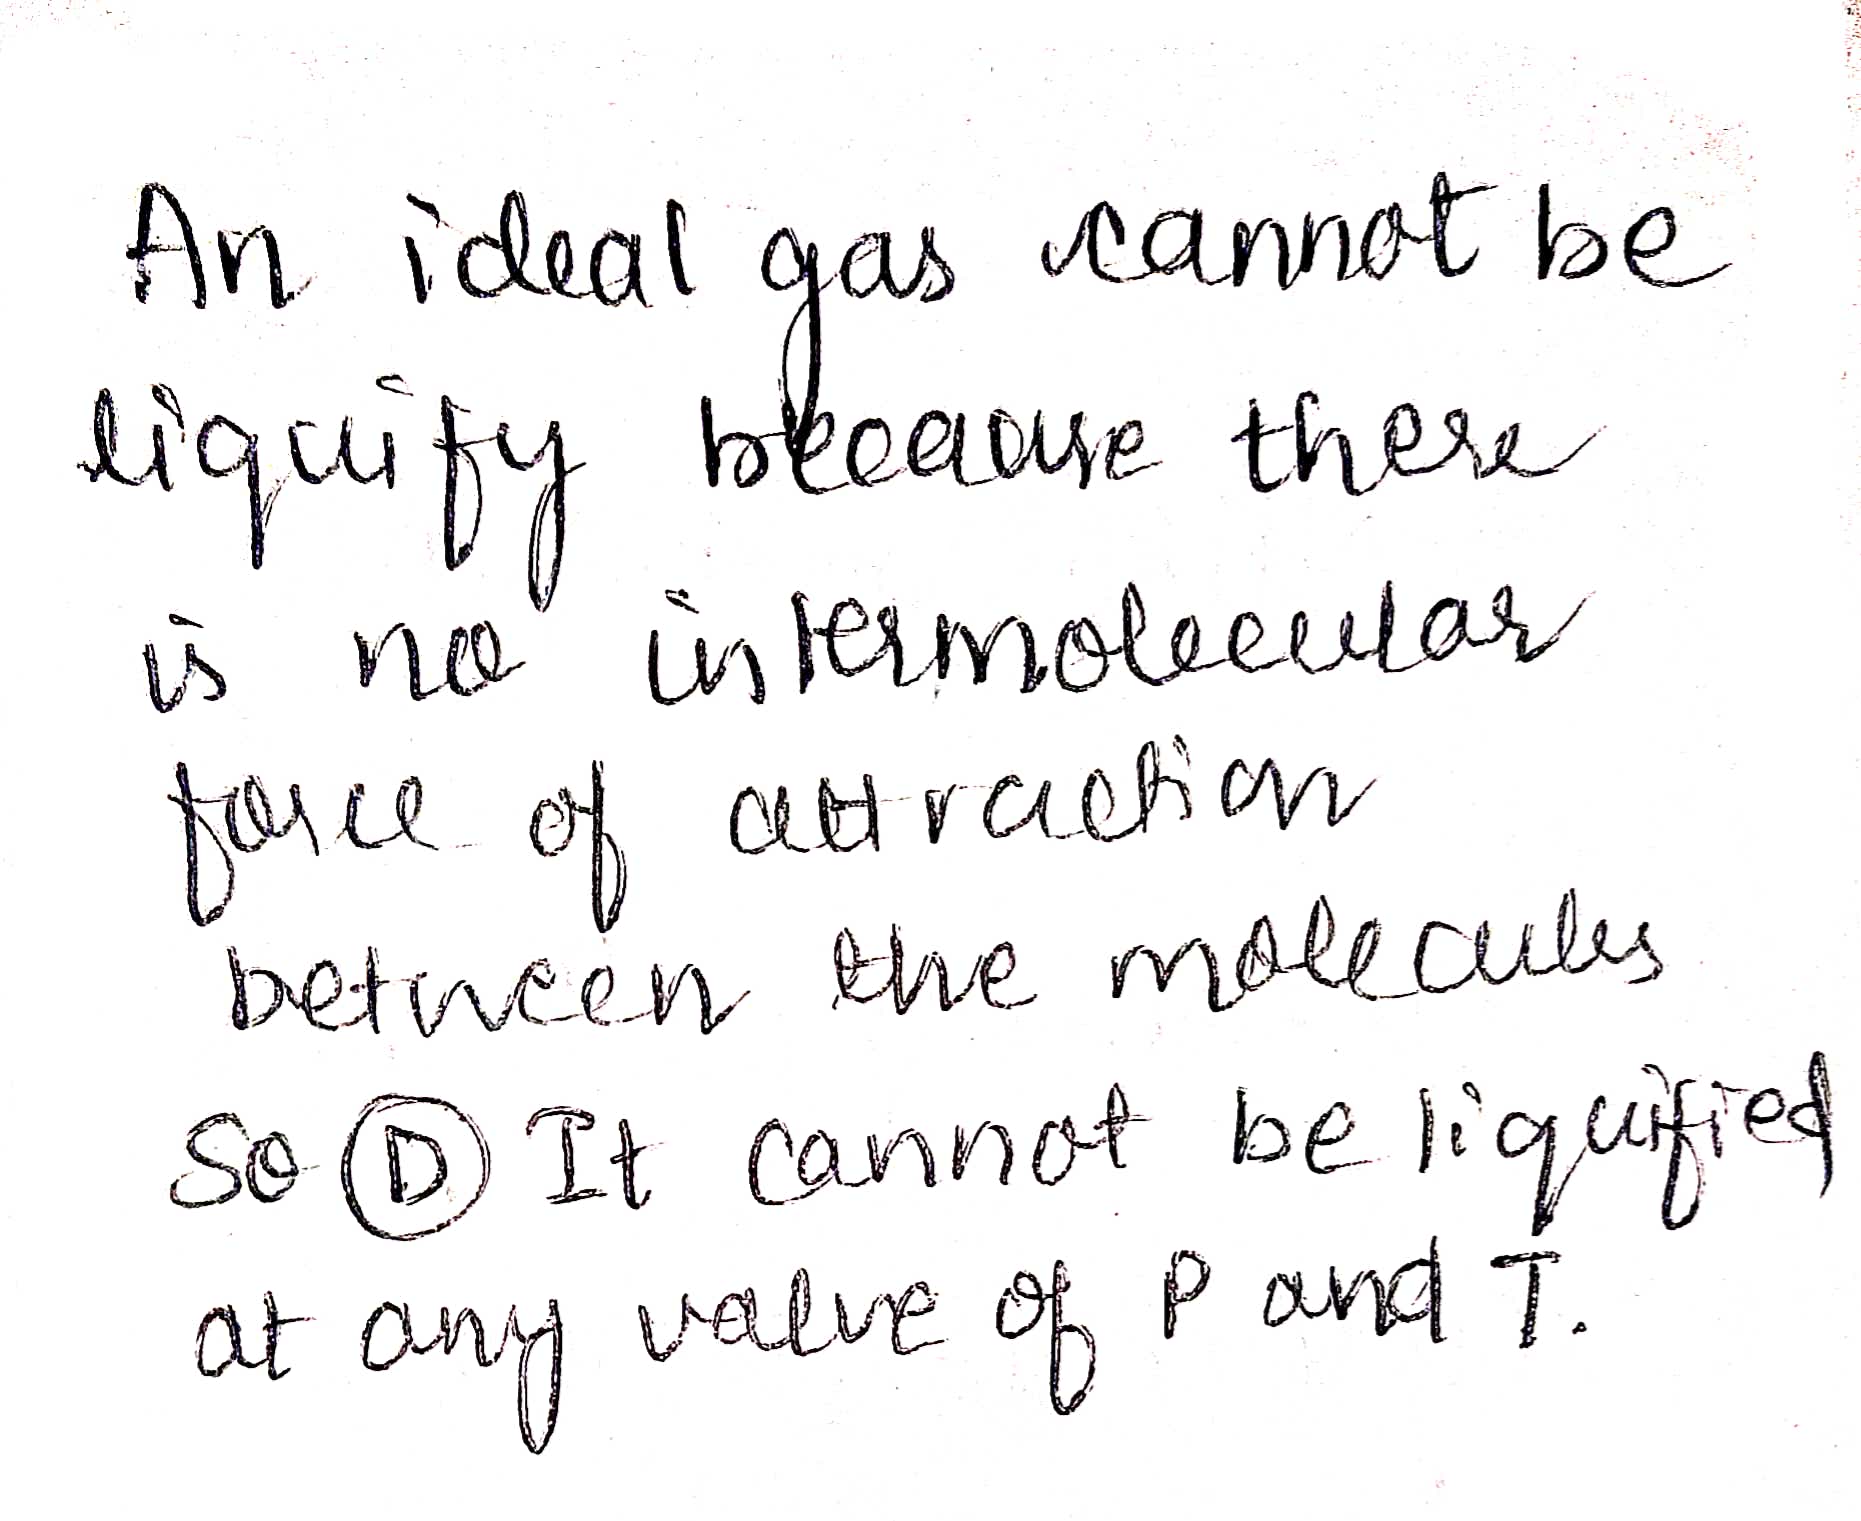 An ideal gas cannot be
liquify because there
is no intermolecular
force of attraction
between the molecules
So D It cannot be liquified
at any value of P and T.